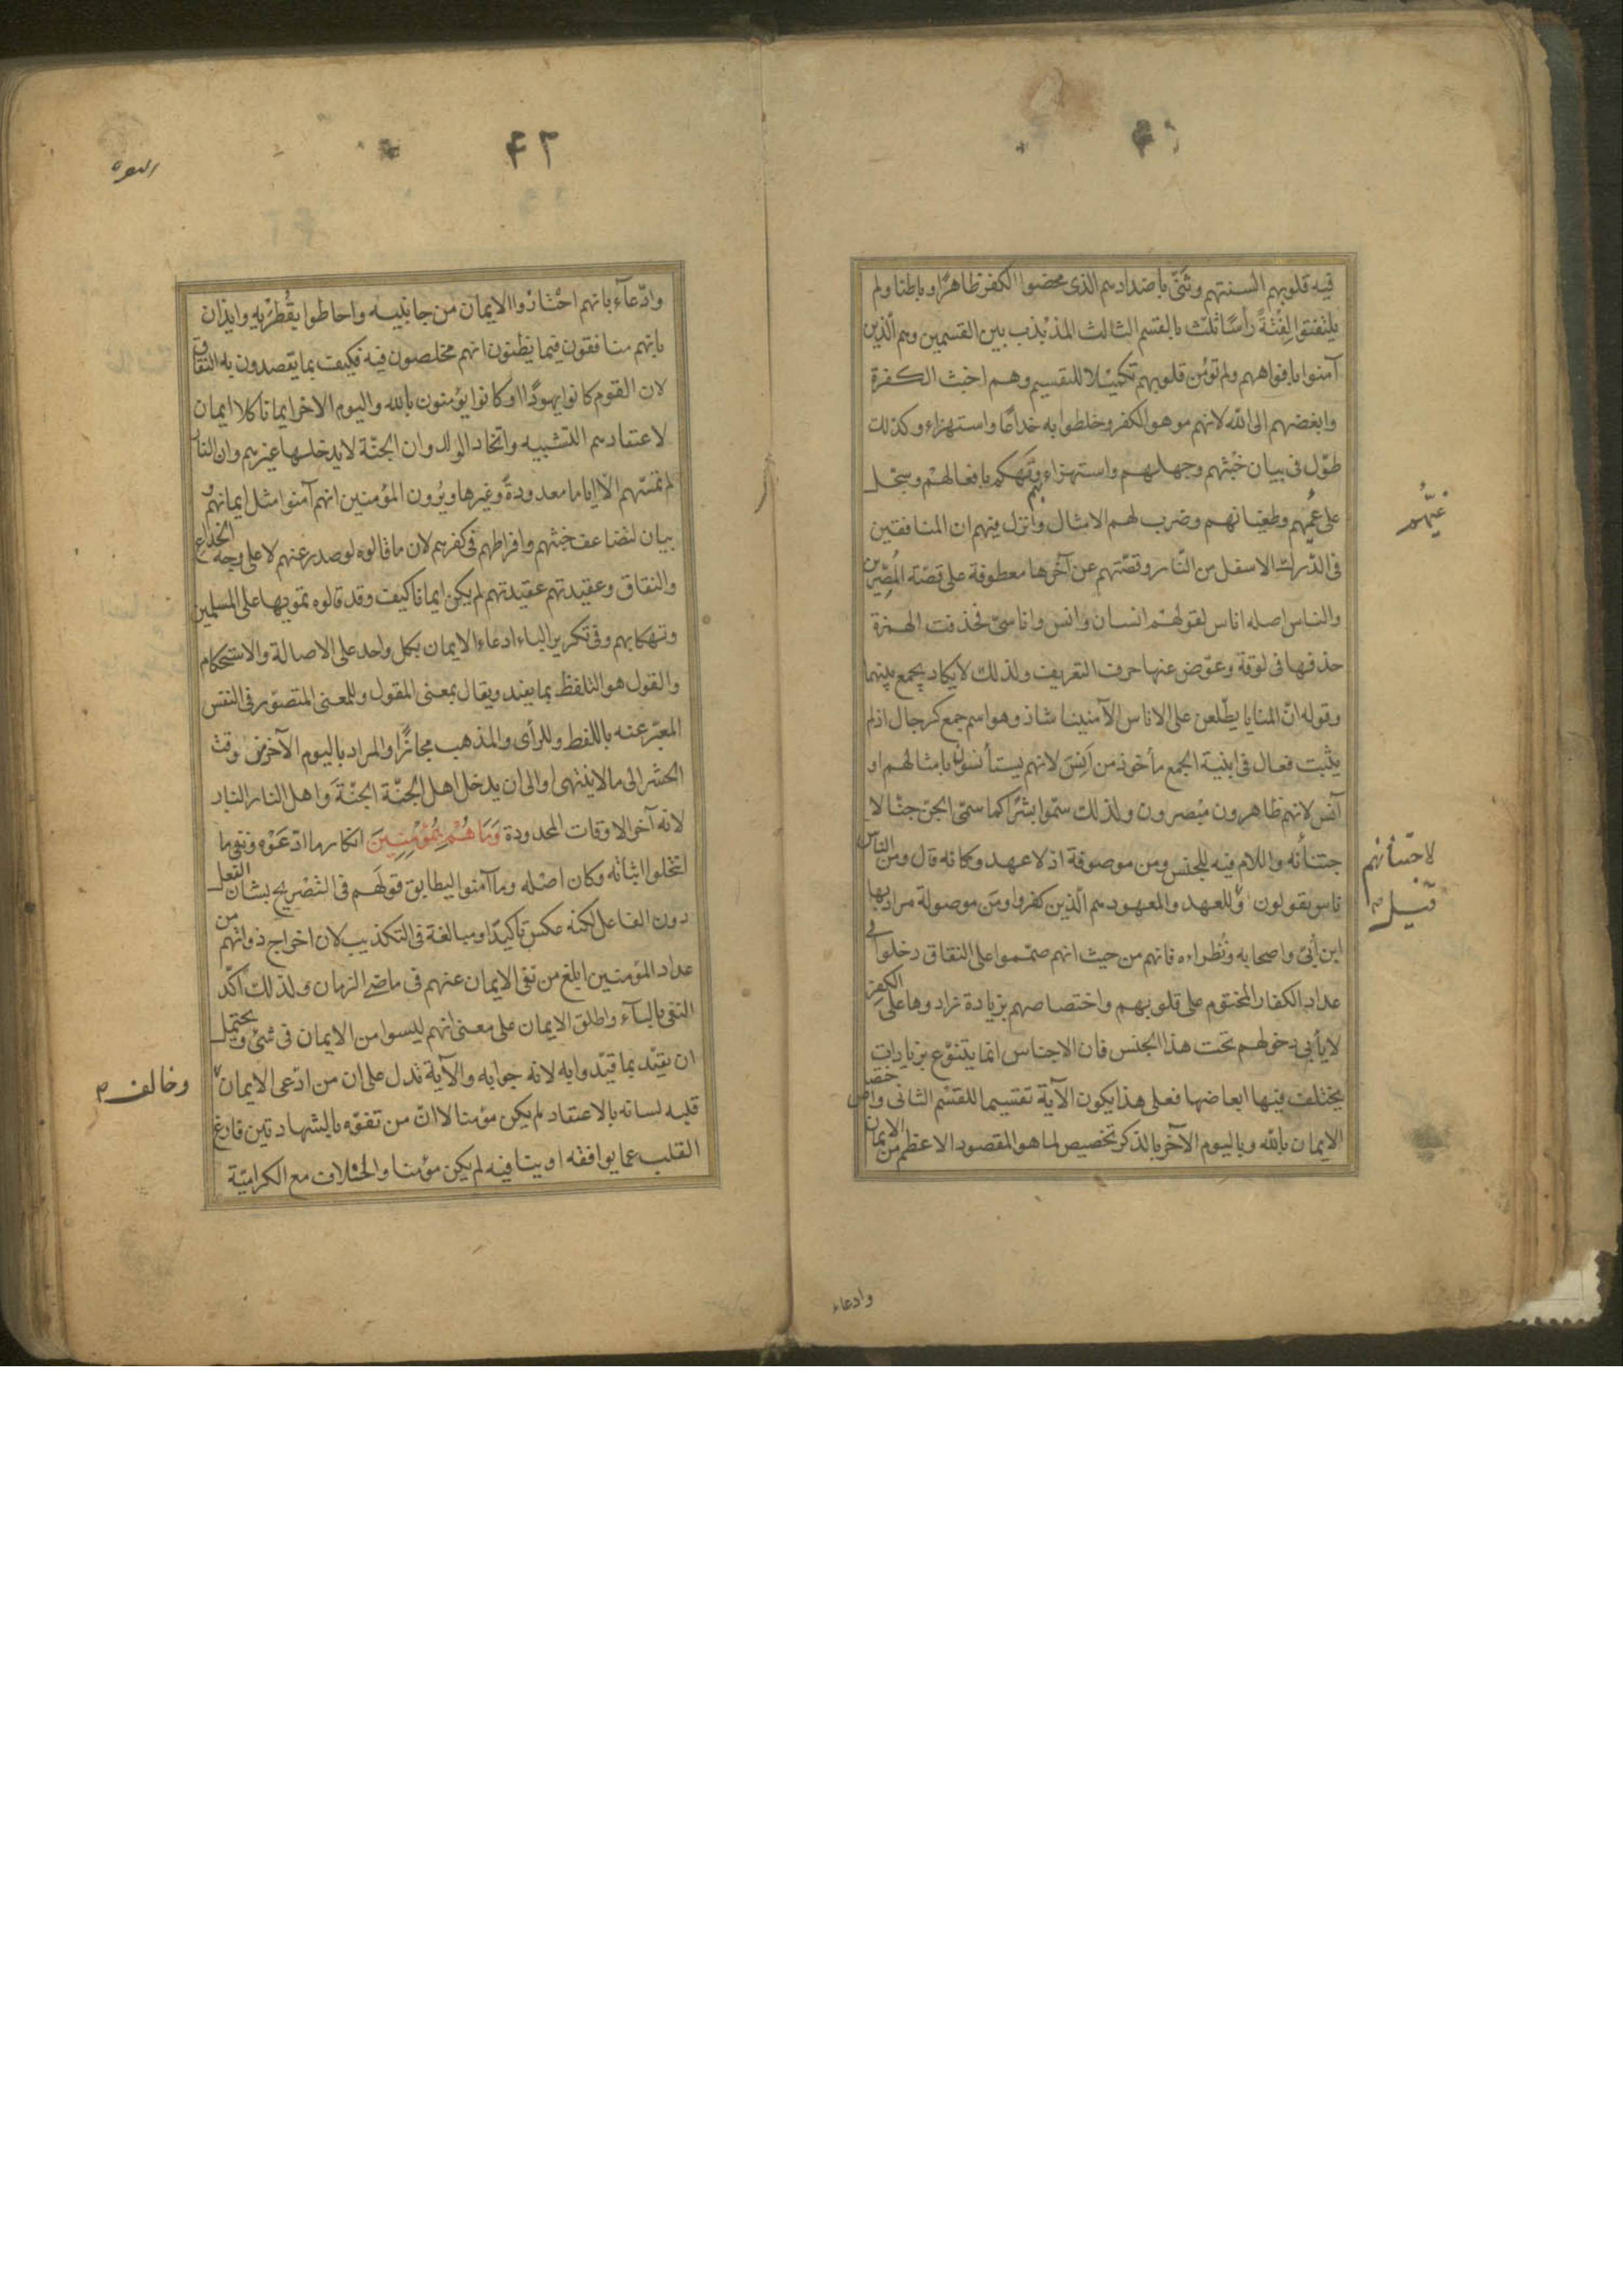 فيه قلوبهم السنتهم وثنّى باضدادهم الذى محضوا الكفر ظاهرًا وباطنا ولم
يلتفتوا لِفْتَةً رأسًا ثلّث بالقسم الثالث المذبْذب بين القسمين وهم الّذين
آمنوا بافواههم ولم تؤمن قلوبهم تكميْلا للتقسيم وهم اخبث الكفرة
وابغضهم الى الله لانهم موهوا الكفر وخلطوا به خداعًا واستهزاء وكذلك
طوّل فى بيان خُبْثهم وجهلهم واستهزاء بهم وتهكم بافعالهمْ وسجّل
على عُمْيهم وطغيانهم وضرب لهم الامثال وانزل فيهم ان المنافقين
غَيِّهُم
فى الدّرك الاسفل من النّار وقصّتهم عن آخرها معطوفة على قصّة المُصِرّين
والناس اصله اناس لقولهمْ انسان وانس واناسىّ فحذفت الهمزة
حذفها فى لوقة وعوّض عنها حرف التعريف ولذلك لا يكاد يجمع بينهما
وقوله انّ المنايا يطّلعن على الاناس الآمنينا شاذ وهو اسم جمع كرجال اذ لم
يثبت فعال فى ابنية الجمع مأخوذ من اَنِسَ لانهم يستأنسون بامثالهم او
آنس لانهم ظاهرون مبْصرون ولذلك سمّوا بشرًا كما سمّى الجن جنّا لا
لاجتنانهم
جتنأنه واللام فيه للجنس ومن موصوفة اذ لا عهد وكانه قال ومن الناس
ناس يقولون وللعهد والمعهود هم الّذين كفروا ومَن موصولة مراد بها
قيل
ابن أُبىّ واصحابه ونُظراءه فانهم من حيث انهم صمّموا على النفاق دخلوا فى
عداد الكفار المختوم على قلوبهم واختصاصهم بزيادة زادوها على الكفر
لا يأبى دخولهم تحت هذا الجنس فان الاجناس انما يتنوّع بزيادات
يختلف فيها ابعاضها فعلى هذا يكون الآية تقسيما للقسْم الثانى واختصا
الايمان بالله وباليوم الآخر بالذكر تخصيص لما هو المقصود الاعظم من الايمان
وادعاء
۴۲
وادّعآء بانهم احْتازوا الايمان من جانبيه واحاطوا بقُطرَيْهِ وايذان
بانّهم منافقون فيما يظنون انهم مخلصون فيه فكيف بما يقصدون به النفاق
لان القوم كانوا يهودًا وكانوا يؤمنون بالله واليوم الاخر ايمانا كلا ايمان
لاعتقادهم التشبيه واتخاد الولد وان الجنّة لا يدخلها غيرهم وان النار
لم تمسّهم الا اياما معدودةً وغيرها ويُرون المؤمنين انهم آمنوا مثل ايمانهم و
بيان لتضاعف خبثهم وافراطهم فى كفرهم لان ما قالوه لو صدر عنهم لا على وجه الخداع
والنفاق وعقيدتهم عقيدتهم لم يكن ايمانا كيف وقد قالوه تمويها على المسلمين
وتهكما بهم وفى تكرير الباء ادعاء الايمان بكل واحد على الاصالة والاستحكام
والقول هو التلفظ بما يفيد ويقال بمعنى المقول وللمعنى المتصوّر فى النفس
المعبّر عنه باللفظ وللرأى والمذهب مجازًا والمراد باليوم الآخر من وقت
الحشر الى ما لا ينتهى او الى ان يدخل اهل الجنّة الجنّةَ واهل النار النار
لانه آخر الاوقات المحدودة وَمَا هُمْ بِمُؤْمِنِينَ انكار ما ادّعَوْه ونفى ما
انتحلوا اثباته وكان اصْله وما آمنوا ليطابق قولَهم فى التصْريح بشان الفعل
دون الفاعل لكنه عكس تأكيدًا ومبالغة فى التكذيب لان اخراج ذواتهم من
عداد المؤمنين ابلغ من نفى الايمان عنهم فى ماضى الزمان ولذلك اكّد
النفى بالبآء واطلق الايمان على معنى انهم ليسوا من الايمان فى شئ ويحتمل
ان يقيّد بما قيّدوا به لانه جوابه والآية تدل على ان من ادّعى الايمان
وخالف
قلبه لسانه بالاعتقاد لم يكن مؤمنا لا انّ من تفوّه بالشهادتين فارغ
القلب عما يوافقه او ينافيه لم يكن مؤمنا والخلاف مع الكراميّة